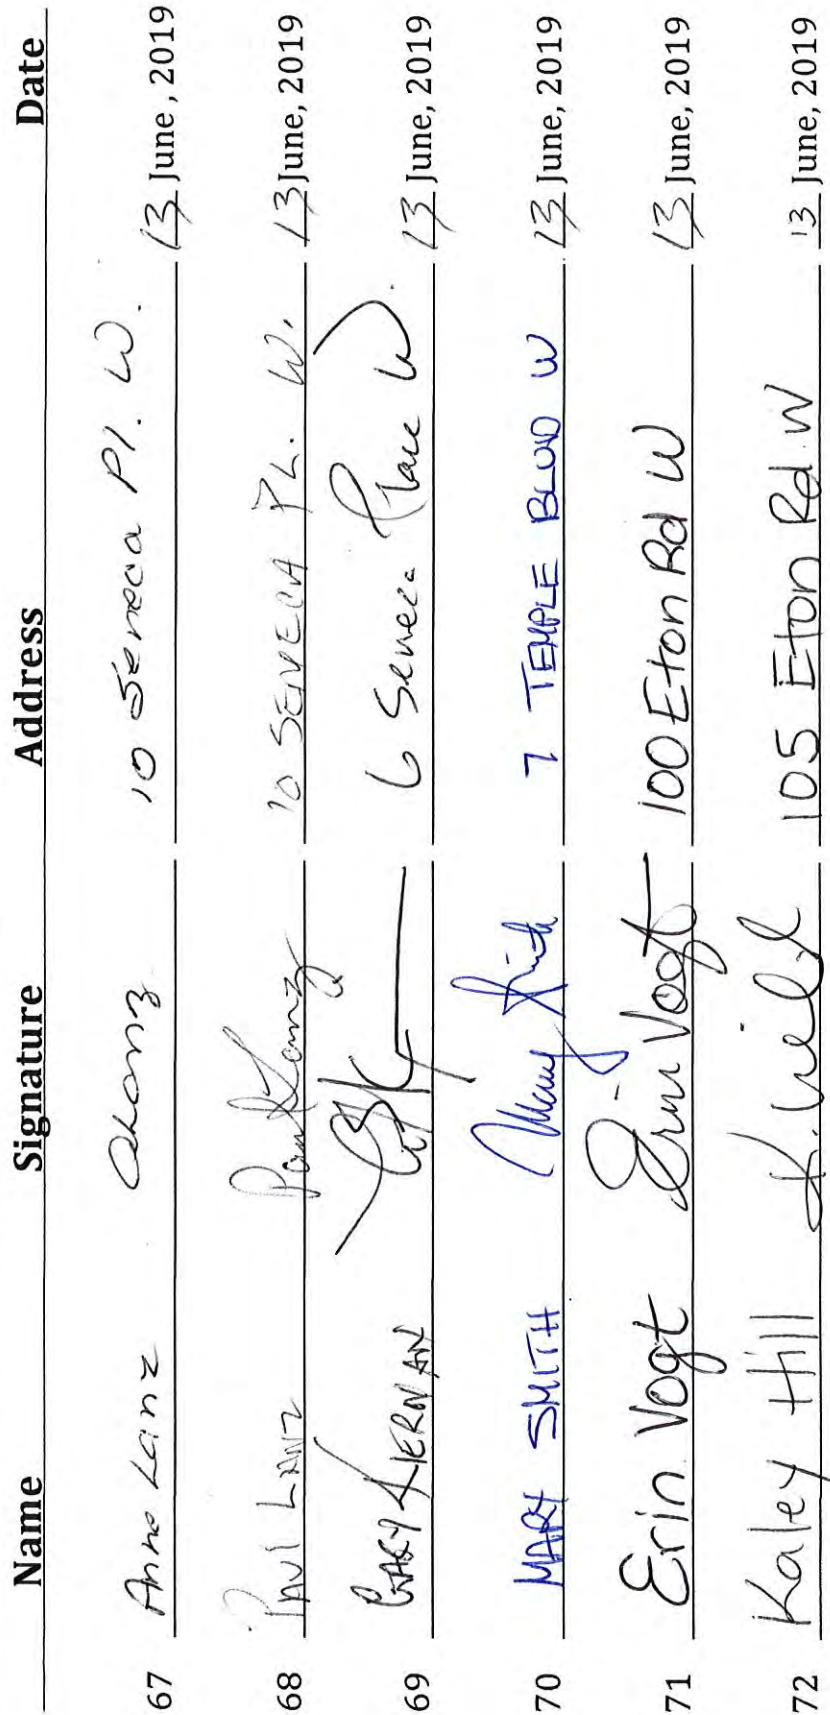 Name Signature Address Date
67 Anne Lanz 10 Seneca Pl. W. 13 June, 2019
68 Paul Lanz Paul Lanz 10 SENECA PL. W. 13 June, 2019
69 GARY KIERNAN 6 Seneca Place W. 13 June, 2019
70 MARY SMITH Mary Smith 7 TEMPLE BLVD W 13 June, 2019
71 Erin Vogt Erin Vogt 100 Eton Rd W 13 June, 2019
72 Kaley Hill 105 Eton Rd W 13 June, 2019